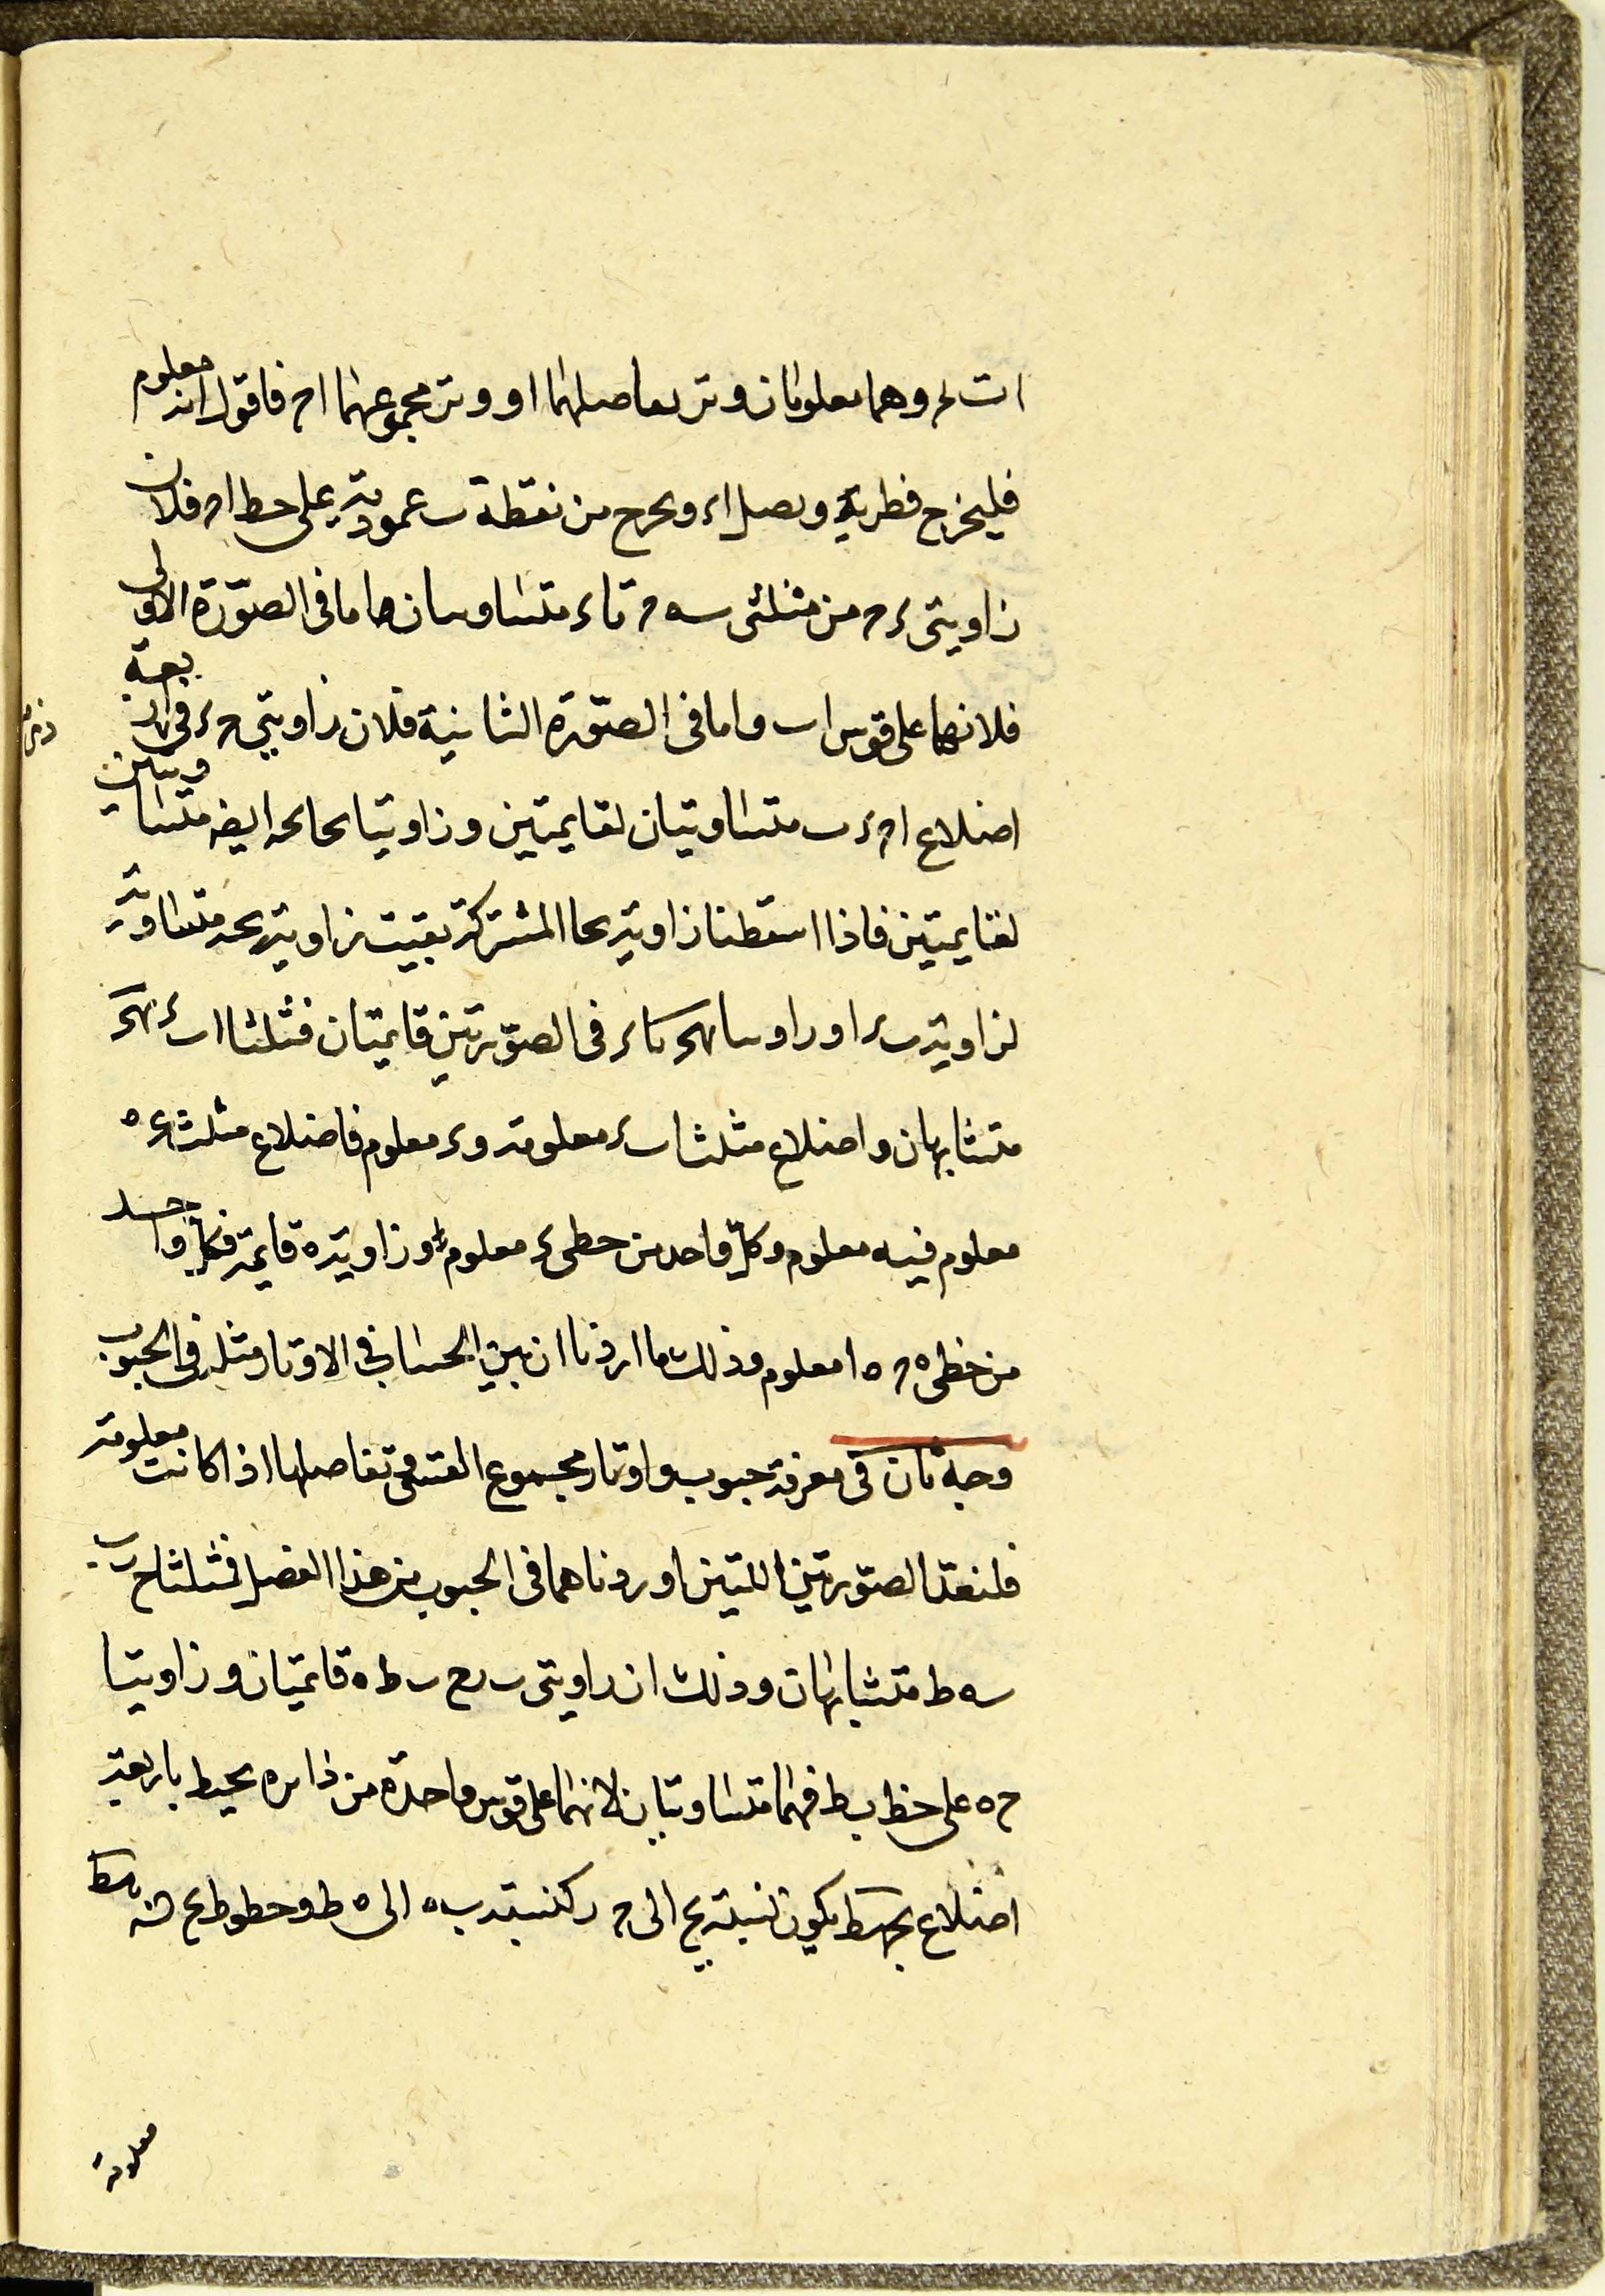 اب بج وهما معلومان وتر تفاضلهما او وتر مجموعهما اج فاقول انه معلوم
فليخرج قطر بد ويصل اد ويخرج من نقطة ب عمود به على خط اج فلان
زاويتى د ج من مثلثى به ج باد متساويتان اما فى الصورة الاولى
فلانهما على قوس اب واما فى الصورة الثانية فلان زاويتي ج د فى اربعة
اضلاع اج د ب متساويتان لقايمتين وزاويتا بجا بجه ايضه متساويتين
لقايمتين فاذا اسقطنا زاوية بجا المشتركة بقيت زاوية بجه متساوية
لزاوية بدا وزاويتا بهج باد فى الصورتين قايمتان فمثلثا ابد بهج
متشابهان واضلاع مثلث ابد معلومة و معلوم فاضلاع مثلث
معلوم فيه معلوم وكل واحد من خطى معلوم وزاوية ه قايمة فكل واحد
من خطى ه ج ه ا معلوم وذلك ما اردنا ان نبين الحساب فى الاوتار ومثله فى الجيوب
وجه ثان فى معرفة جيوب واوتار مجموع القسى وتفاضلها اذا كانت معلومة
فلنعد الصورتين اللتين اوردناهما فى الجيوب من هذا الفصل فمثلثا ح ر ب
به ط متشابهان وذلك ان زاويتى ب ر ح ب ط ه قايمتان وزاويتا
ح ه على خط ب ط فهما متساويتان لانهما على قوس واحدة من دايره يحيط باربعة
اضلاع بحهط يكون نسبة بح الى ح ر كنسبة ب ه الى ه ط وخطوط بح
معلومة